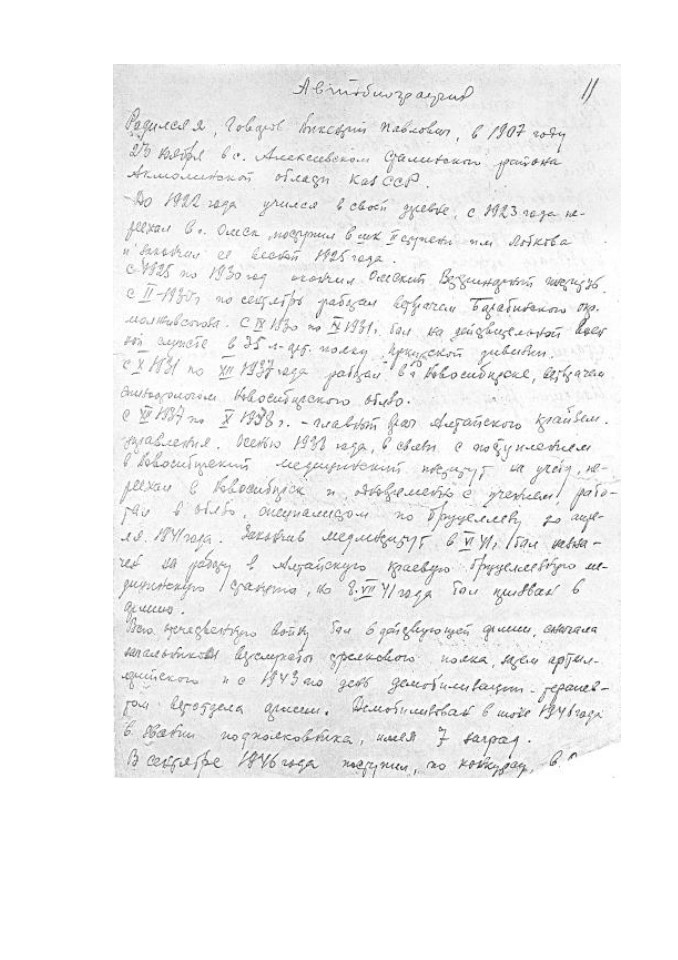 Автобиография 11
Родился я, Говоров Викентий Павлович, в 1907 году
ноября в с. Алексеевском Сталинского района
Акмолинской области КазССР.
До 1922 года учился в своей деревне, с 1923 года пе-
реехал в г. Омск, поступил в шк II ступени им. Лобкова
и закончил ее весной 1925 года.
С 1925 по 1930 год окончил Омский Ветеринарный институт.
С II-1930г. по сентябрь работал ветврачем Барабинского окр.
молживсоюза. С IX 1930 по X 1931г. был на действительной воен
ной службе в 35 л-арт. полку, Иркутской дивизии.
С X 1931 по XII 1937 года работал в г. Новосибирске, ветврачем
эпизоотологом Новосибирского облзо.
С XII 1937 по X 1938 г. - главный врач Алтайского крайвет.
управления. Осенью 1938 года, в связи с поступлением
в Новосибирский медицинский институт на учебу, пе-
реехал в Новосибирск и одновременно с учением рабо-
тал в облзо, специалистом по бруцеллезу до апре-
ля 1941 года. Закончив мединститут в VI 41г. был назна-
чен на работу в Алтайскую краевую бруцеллезную ме-
дицинскую станцию, но 8.VII 41 года был призван в
армию.
Всю отечественную войну был в действующей армии, сначала
начальником ветслужбы стрелкового полка, затем артил-
лерийского и с 1943 по день демобилизации - терапев-
том ветотдела армии. Демобилизован в июне 1946 года
в звании подполковника, имея 7 наград.
В сентябре 1946 года поступил, по конкурсу, в